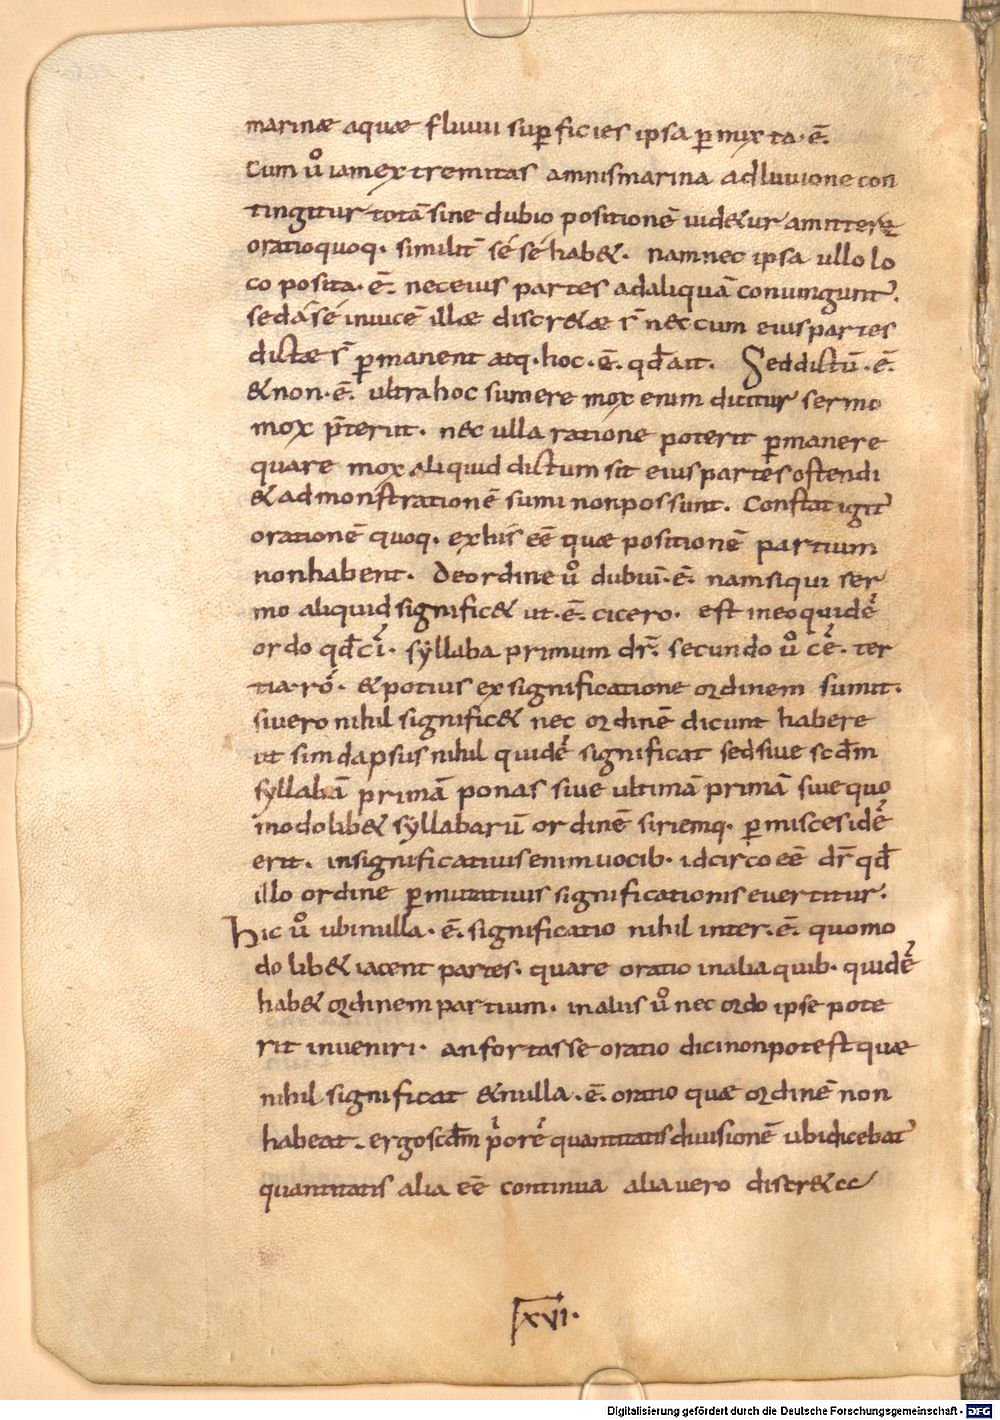 marinæ aquæ fluuii sup̲ficies ipsa p̲mixta·ē·
Cum u͛o iam extremitas amnis marina adluuione con
tingitur totā sine dubio positionē uid&ur amittere
oratio quoq· similit̄ sé sé hab&· nam nec ipsa ullo lo
co posita·ē· nec eius partes ad aliquā coniungunt̄·
sed á sé inuicē illæ discr&æ s̄ nec cum eius partes
dictæ s̄ p̲manent atq·hoc·ē· qđ ait· Sed dictū·ē·
& non·ē· ultra hoc sumere mox enim dicitur sermo
mox p̄terit· nec ulla ratione poterit p̲manere
quare mox aliquid dictum sit eius partes ostendi
& ad monstrationē sumi non possunt· Constat igit̄
orationē quoq· ex his eē quæ positionē partium
non habent· De ordine u͛o dubiū·ē· nam si qui ser
mo aliquid signific& ut·ē· cicero· est in eo quidē
ordo qđ ci· syllaba primum dr̄· secundo u͛o cē· ter
tia ro· & potius ex significatione ordinem sumit·
si uero nihil signific& nec ordinē dicunt habere
ut sindapsus nihil quidē significat sed siue scđm
syllabā primā ponas siue ultimā primā siue quo
modo lib& syllabarū ordinē siriemq· p̲misces idē
erit· in significatiuis enim uocib· idcirco eē dr̄ qđ
illo ordine p̲mutatiuis significationis euertitur·
hic u͛o ubi nulla·ē· significatio nihil inter·ē· quomo
do lib& iacent partes· quare oratio in aliaquib· quidē
hab& ordinem partium· in aliis u͛o nec ordo ipse pote
rit inueniri· an fortasse oratio dici non potest quæ
nihil significat & nulla·ē· oratio quæ ordinē non
habeat· ergo scđm priorē quantitatis diuisionē ubi dicebat̄
quantitatis alia eē continua alia uero discr&a
XVI·
Digitalisierung gefördert durch die Deutsche Forschungsgemeinschaft - DFG